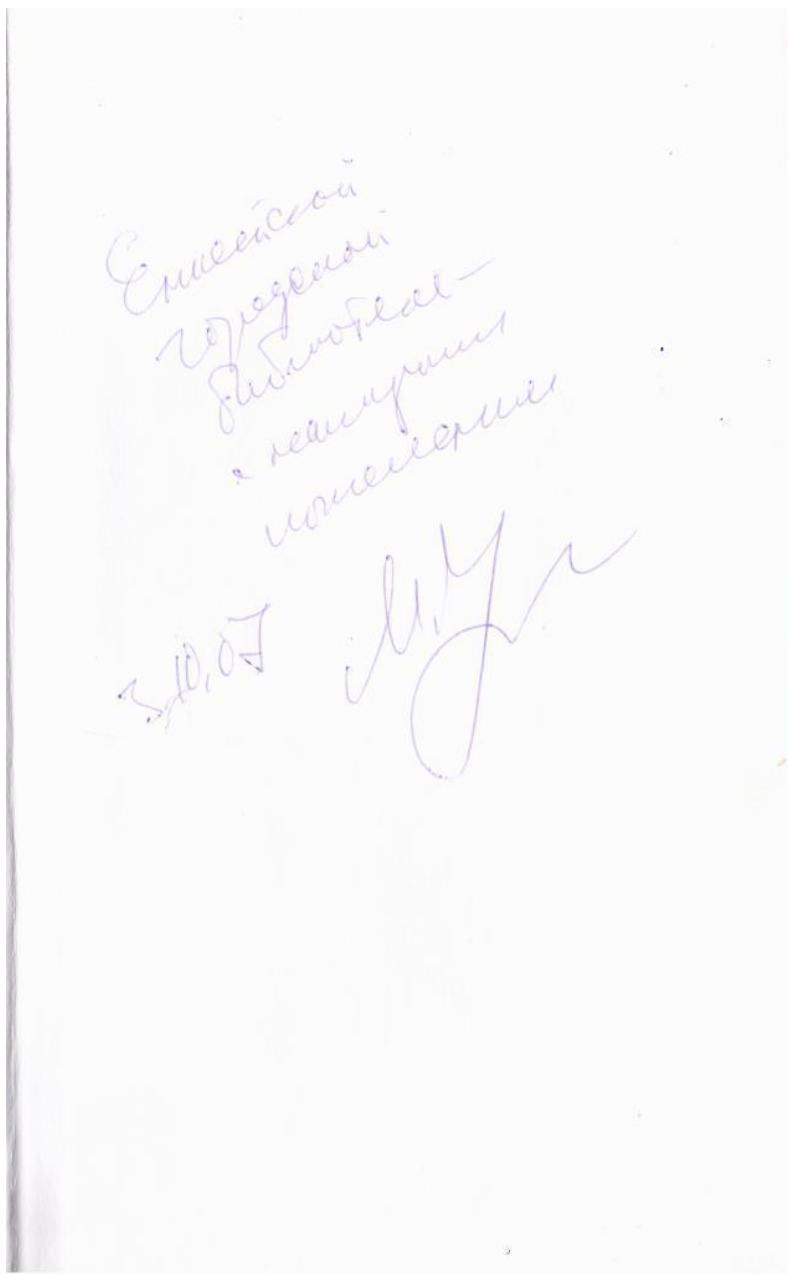 Енисейской
городской
библиотеке –
с наилучшими
пожеланиями
3.10.07 М.У